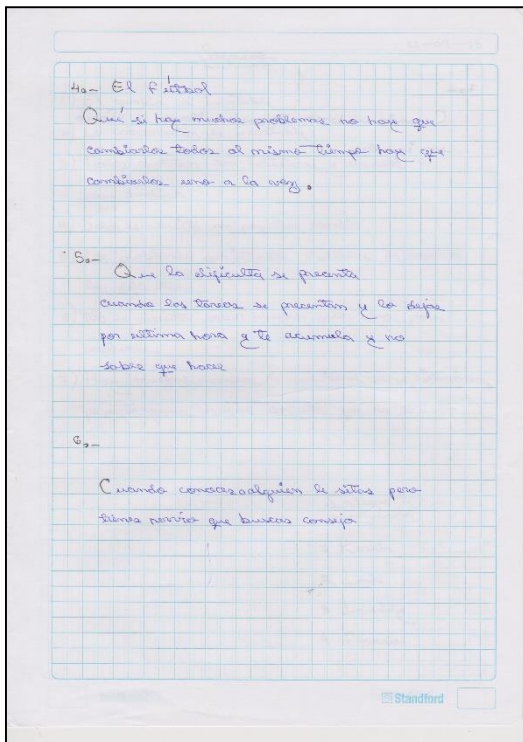 4o- El fútbol
Qué si hay muchos problemas no hay que
cambiarlos todos al mismo tiempo hay que
cambiarlos uno a la vez.
5o-
Que la dificulta se presenta
cuando las tareas se presentan y lo dejas
por ultima hora y te acumula y no
sabes que hacer
6o-
Cuando conoces alguien le sitas pero
tienes novio que buscas consejo
Standford